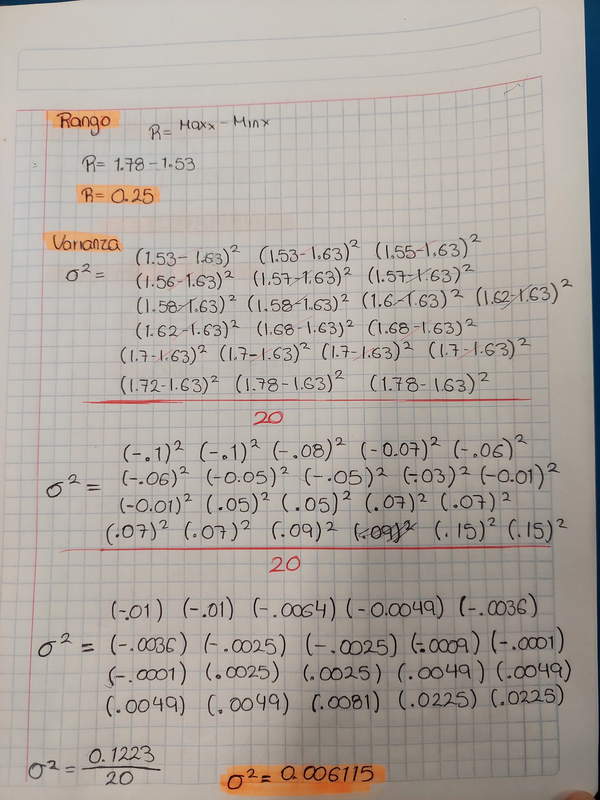 Rango R= Maxx - Minx
R= 1.78-1.53
R= 0.25
Varianza
(1.53- 1.63)² (1.53-1.63)² (1.55-1.63)²
σ²= (1.56-1.63)² (1.57-1.63)² (1.57-1.63)²
(1.58-1.63)² (1.58-1.63)² (1.6-1.63)² (1.62-1.63)²
(1.62-1.63)² (1.68-1.63)² (1.68-1.63)²
(1.7-1.63)² (1.7-1.63)² (1.7-1.63)² (1.7-1.63)²
(1.72-1.63)² (1.78-1.63)² (1.78-1.63)²
20
(-.1)² (-.1)² (-.08)² (-0.07)² (-.06)²
σ² = (-.06)² (-0.05)² (-.05)² (-.03)² (-0.01)²
(-0.01)² (.05)² (.05)² (.07)² (.07)²
(.07)² (.07)² (.09)² (.09)² (.15)² (.15)²
20
(-.01) (-.01) (-.0064) (-0.0049) (-.0036)
σ² = (-.0036) (-.0025) (-.0025) (-.0009) (-.0001)
(-.0001) (.0025) (.0025) (.0049) (.0049)
(.0049) (.0049) (.0081) (.0225) (.0225)
σ² = 0.1223
20
σ²= 0.006115